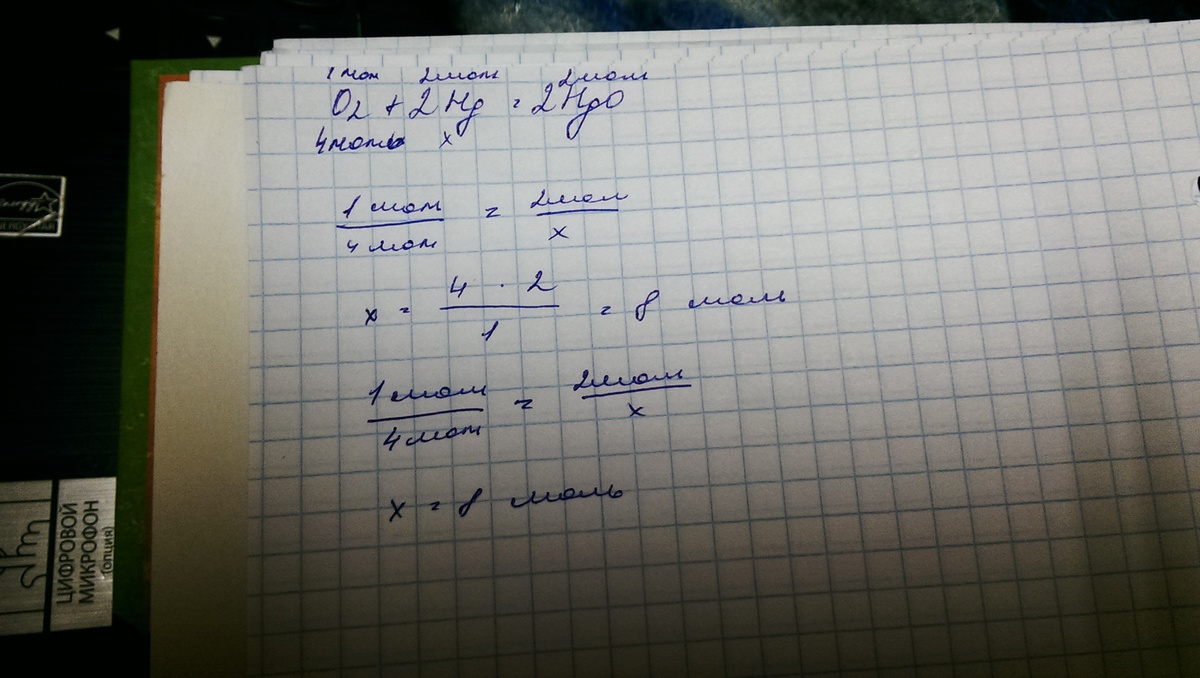 1 мол 2мол 2мол
O2 + 2Hg = 2HgO
4моль x
1 мол / 4 мол = 2мол / x
x = 4 · 2 / 1 = 8 моль
1 мол / 4 мол = 2мол / x
x = 8 моль
ЦИФРОВОЙ
МИКРОФОН
(ОПЦИЯ)